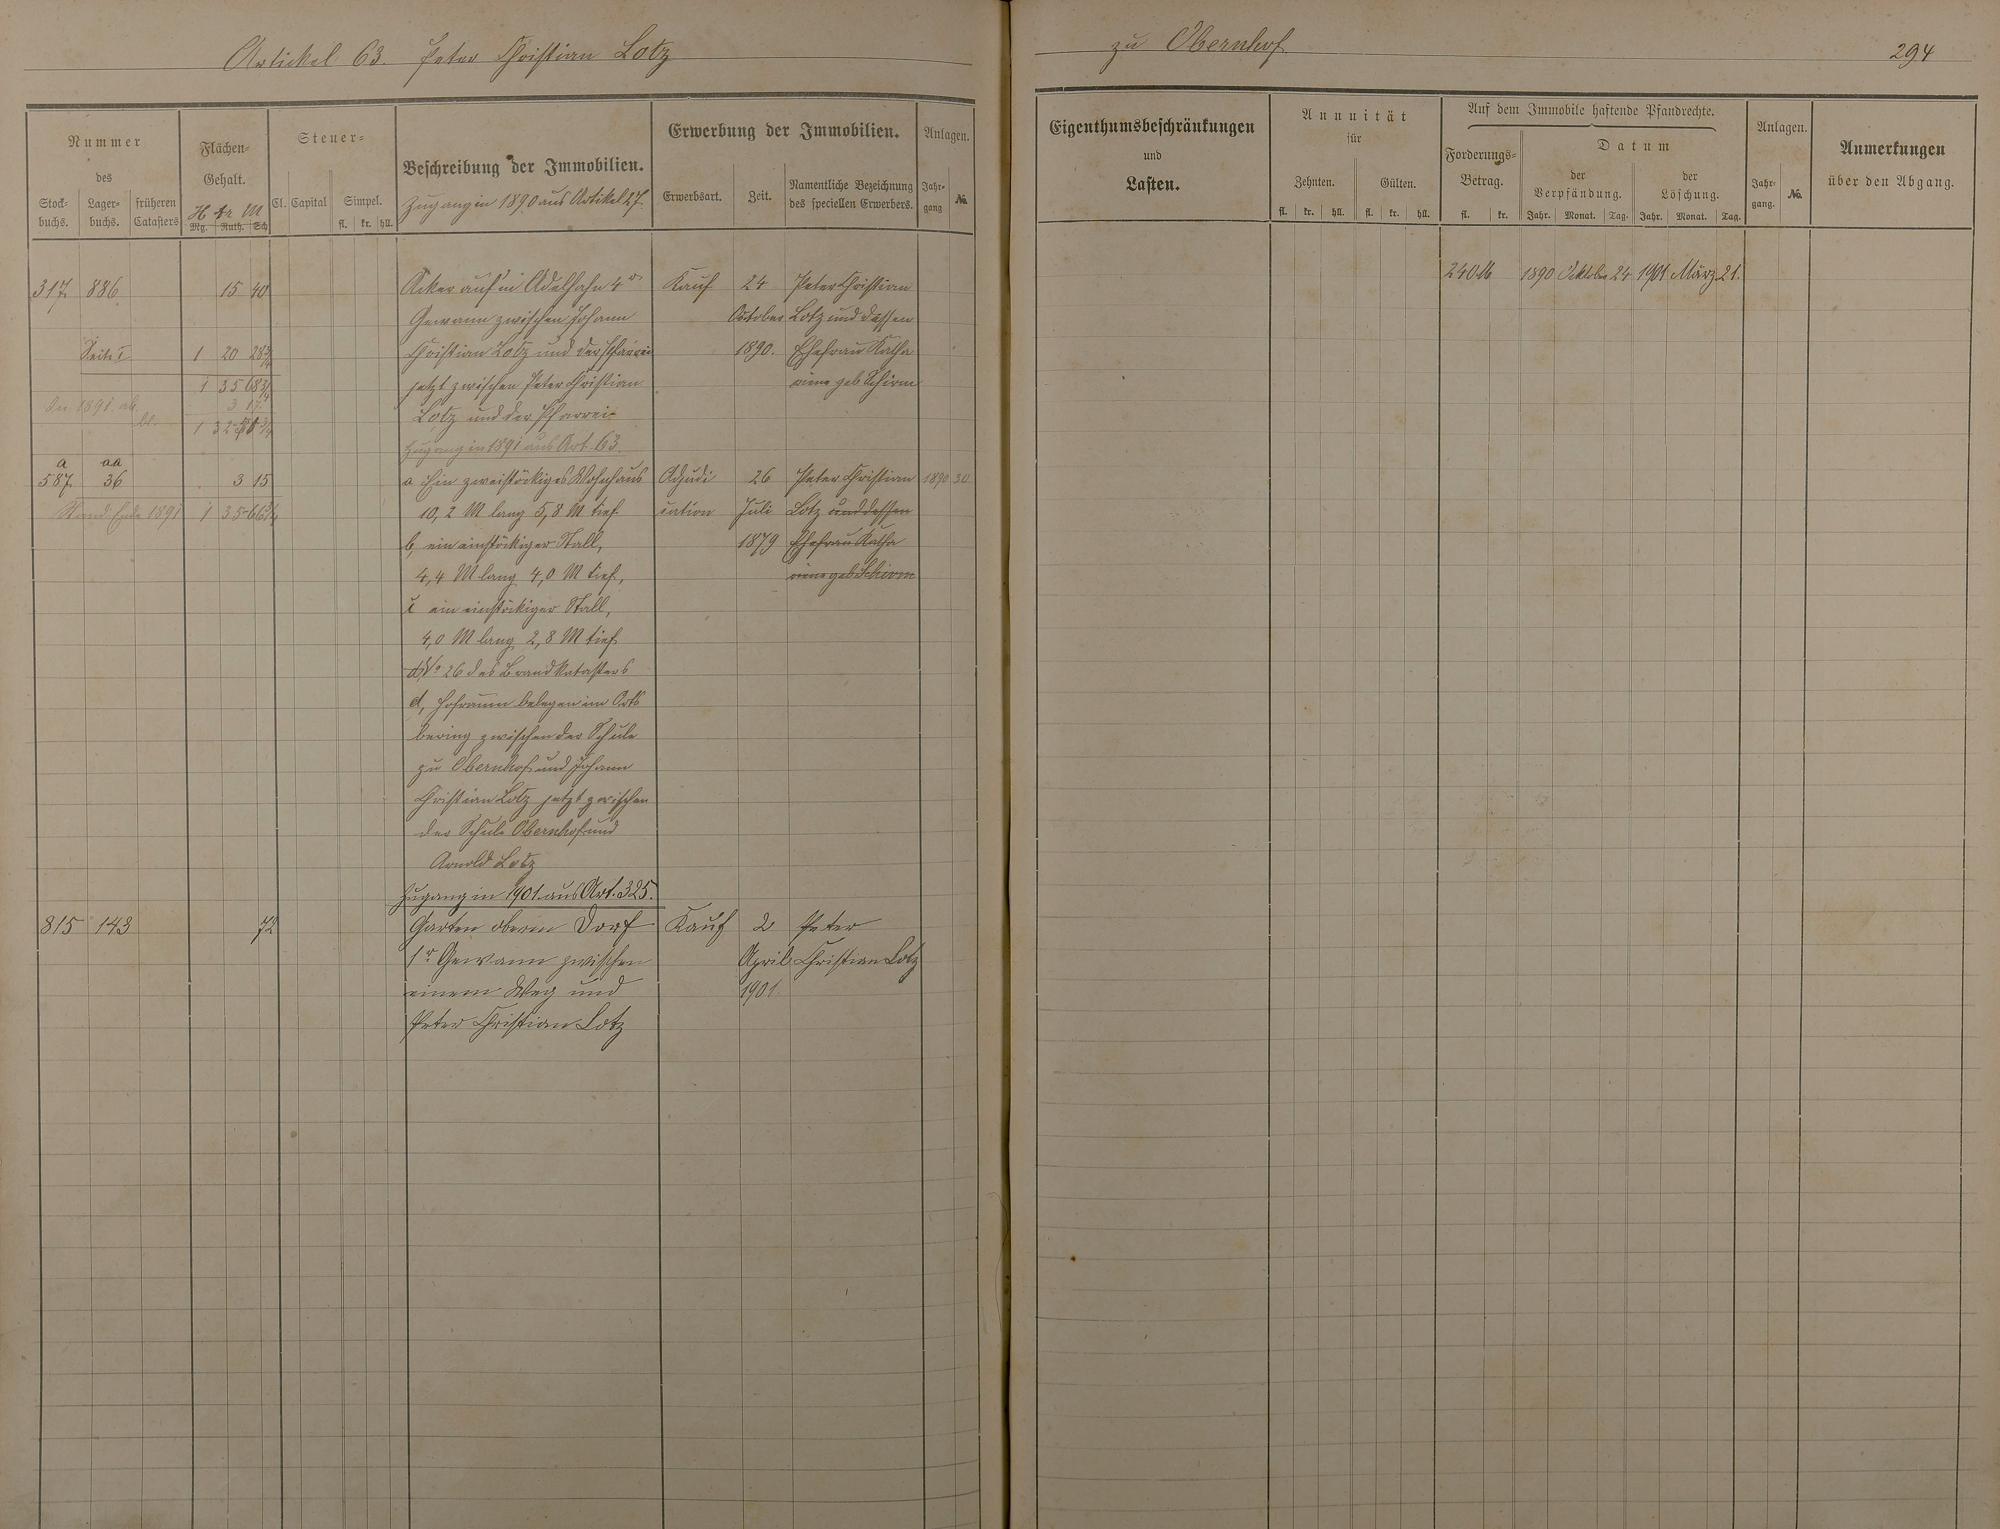 Artikel 63. Peter Christian Lotz
Nummer
des
Stock-
buchs.
Lager-
buchs.
früheren
Catasters
Flächen-
Gehalt.
H ar M
Mg. Ruth. Sch
Steuer-
Cl. Capital Simpel.
fl. kr. hll.
Beschreibung der Immobilien.
Zugang in 1890 aus Artikel 27.
Erwerbung der Immobilien.
Erwerbsart. Zeit. Namentliche Bezeichnung
des speciellen Erwerbers.
Anlagen.
Jahr-
gang No.
317 886 15 40 Acker auf'm Adelhahn 4r Kauf 24 Peter Christian
Gewann zwischen Johann October Lotz und dessen
Seite 1 1 20 28 3/4 Christian Lotz und der Pfarrei 1890. Ehefrau Katha
1 35 68 3/4 jetzt zwischen Peter Christian rine geb Schirm
In 1891 ab 3 17
Lotz und der Pfarrei
bl. 1 32 51 3/4
Zugang in 1891 aus Art. 63.
a aa
587 36 3 15 a Ein zweistöckiges Wohnhaus Adjudi 26 Peter Christian 1890 30
Stand Ende 1891 1 35 66 3/4 10,2 M lang 5,8 M tief cation Juli Lotz und dessen
b, ein einstöckiger Stall, 1879 Ehefrau Katha
4,4 M lang 4,0 M tief, rine geb Schirm
c ein einstöckiger Stall,
4,0 M lang 2,8 M tief
No 26 des Brandkatasters
d, Hofraum belegen im Orts
bering zwischen der Schule
zu Obernhof und Johann
Christian Lotz jetzt zwischen
der Schule Obernhof und
Arnold Lotz
Zugang in 1901 aus Art. 325.
815 143 72 Garten oberm Dorf Kauf 2 Peter
1r Gewann zwischen April Christian Lotz
einem Weg und 1901.
Peter Christian Lotz
zu Obernhof.
294
Eigenthumsbeschränkungen
und
Lasten.
Annuität
für
Zehnten. Gülten.
fl. kr. hll. fl. kr. hll.
Auf dem Immobile haftende Pfandrechte.
Forderungs-
Betrag.
fl. kr.
Datum
der
Verpfändung.
der
Löschung.
Jahr. Monat. Tag. Jahr. Monat. Tag.
Anlagen.
Jahr-
gang. No.
Anmerkungen
über den Abgang.
240 M 1890 Oktober 24 1901 März 21.